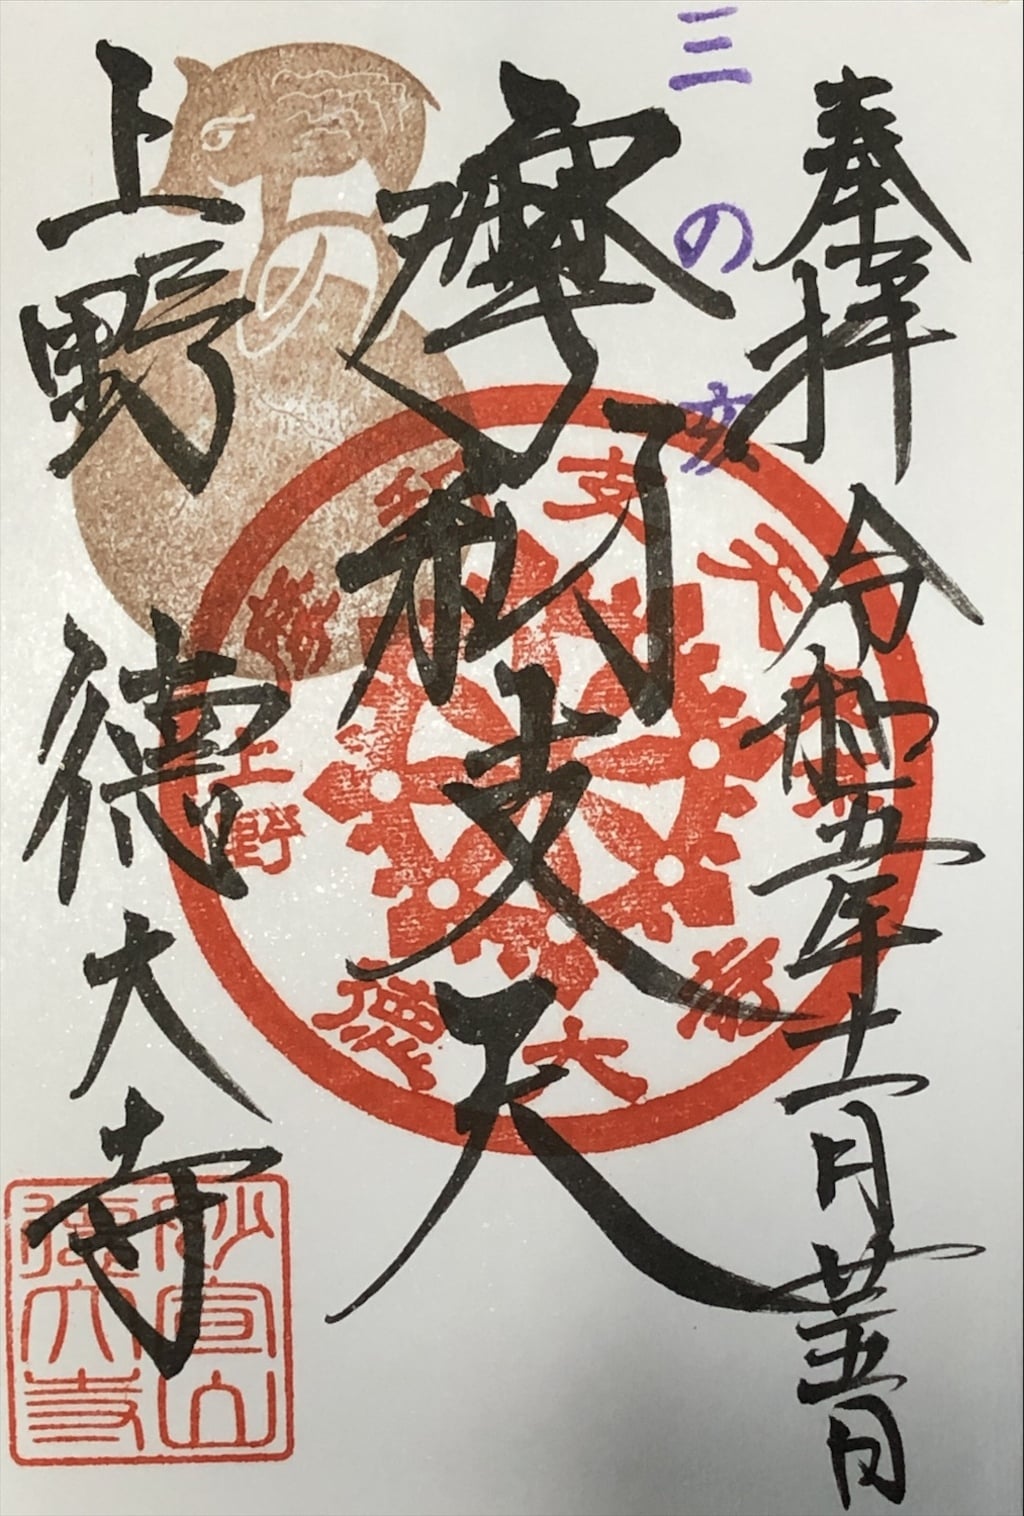 奉拝 令和五年十一月廿五日
三の亥
摩利支天
上野 徳大寺
摩利支天
上野
徳大寺
妙宣山
徳大寺